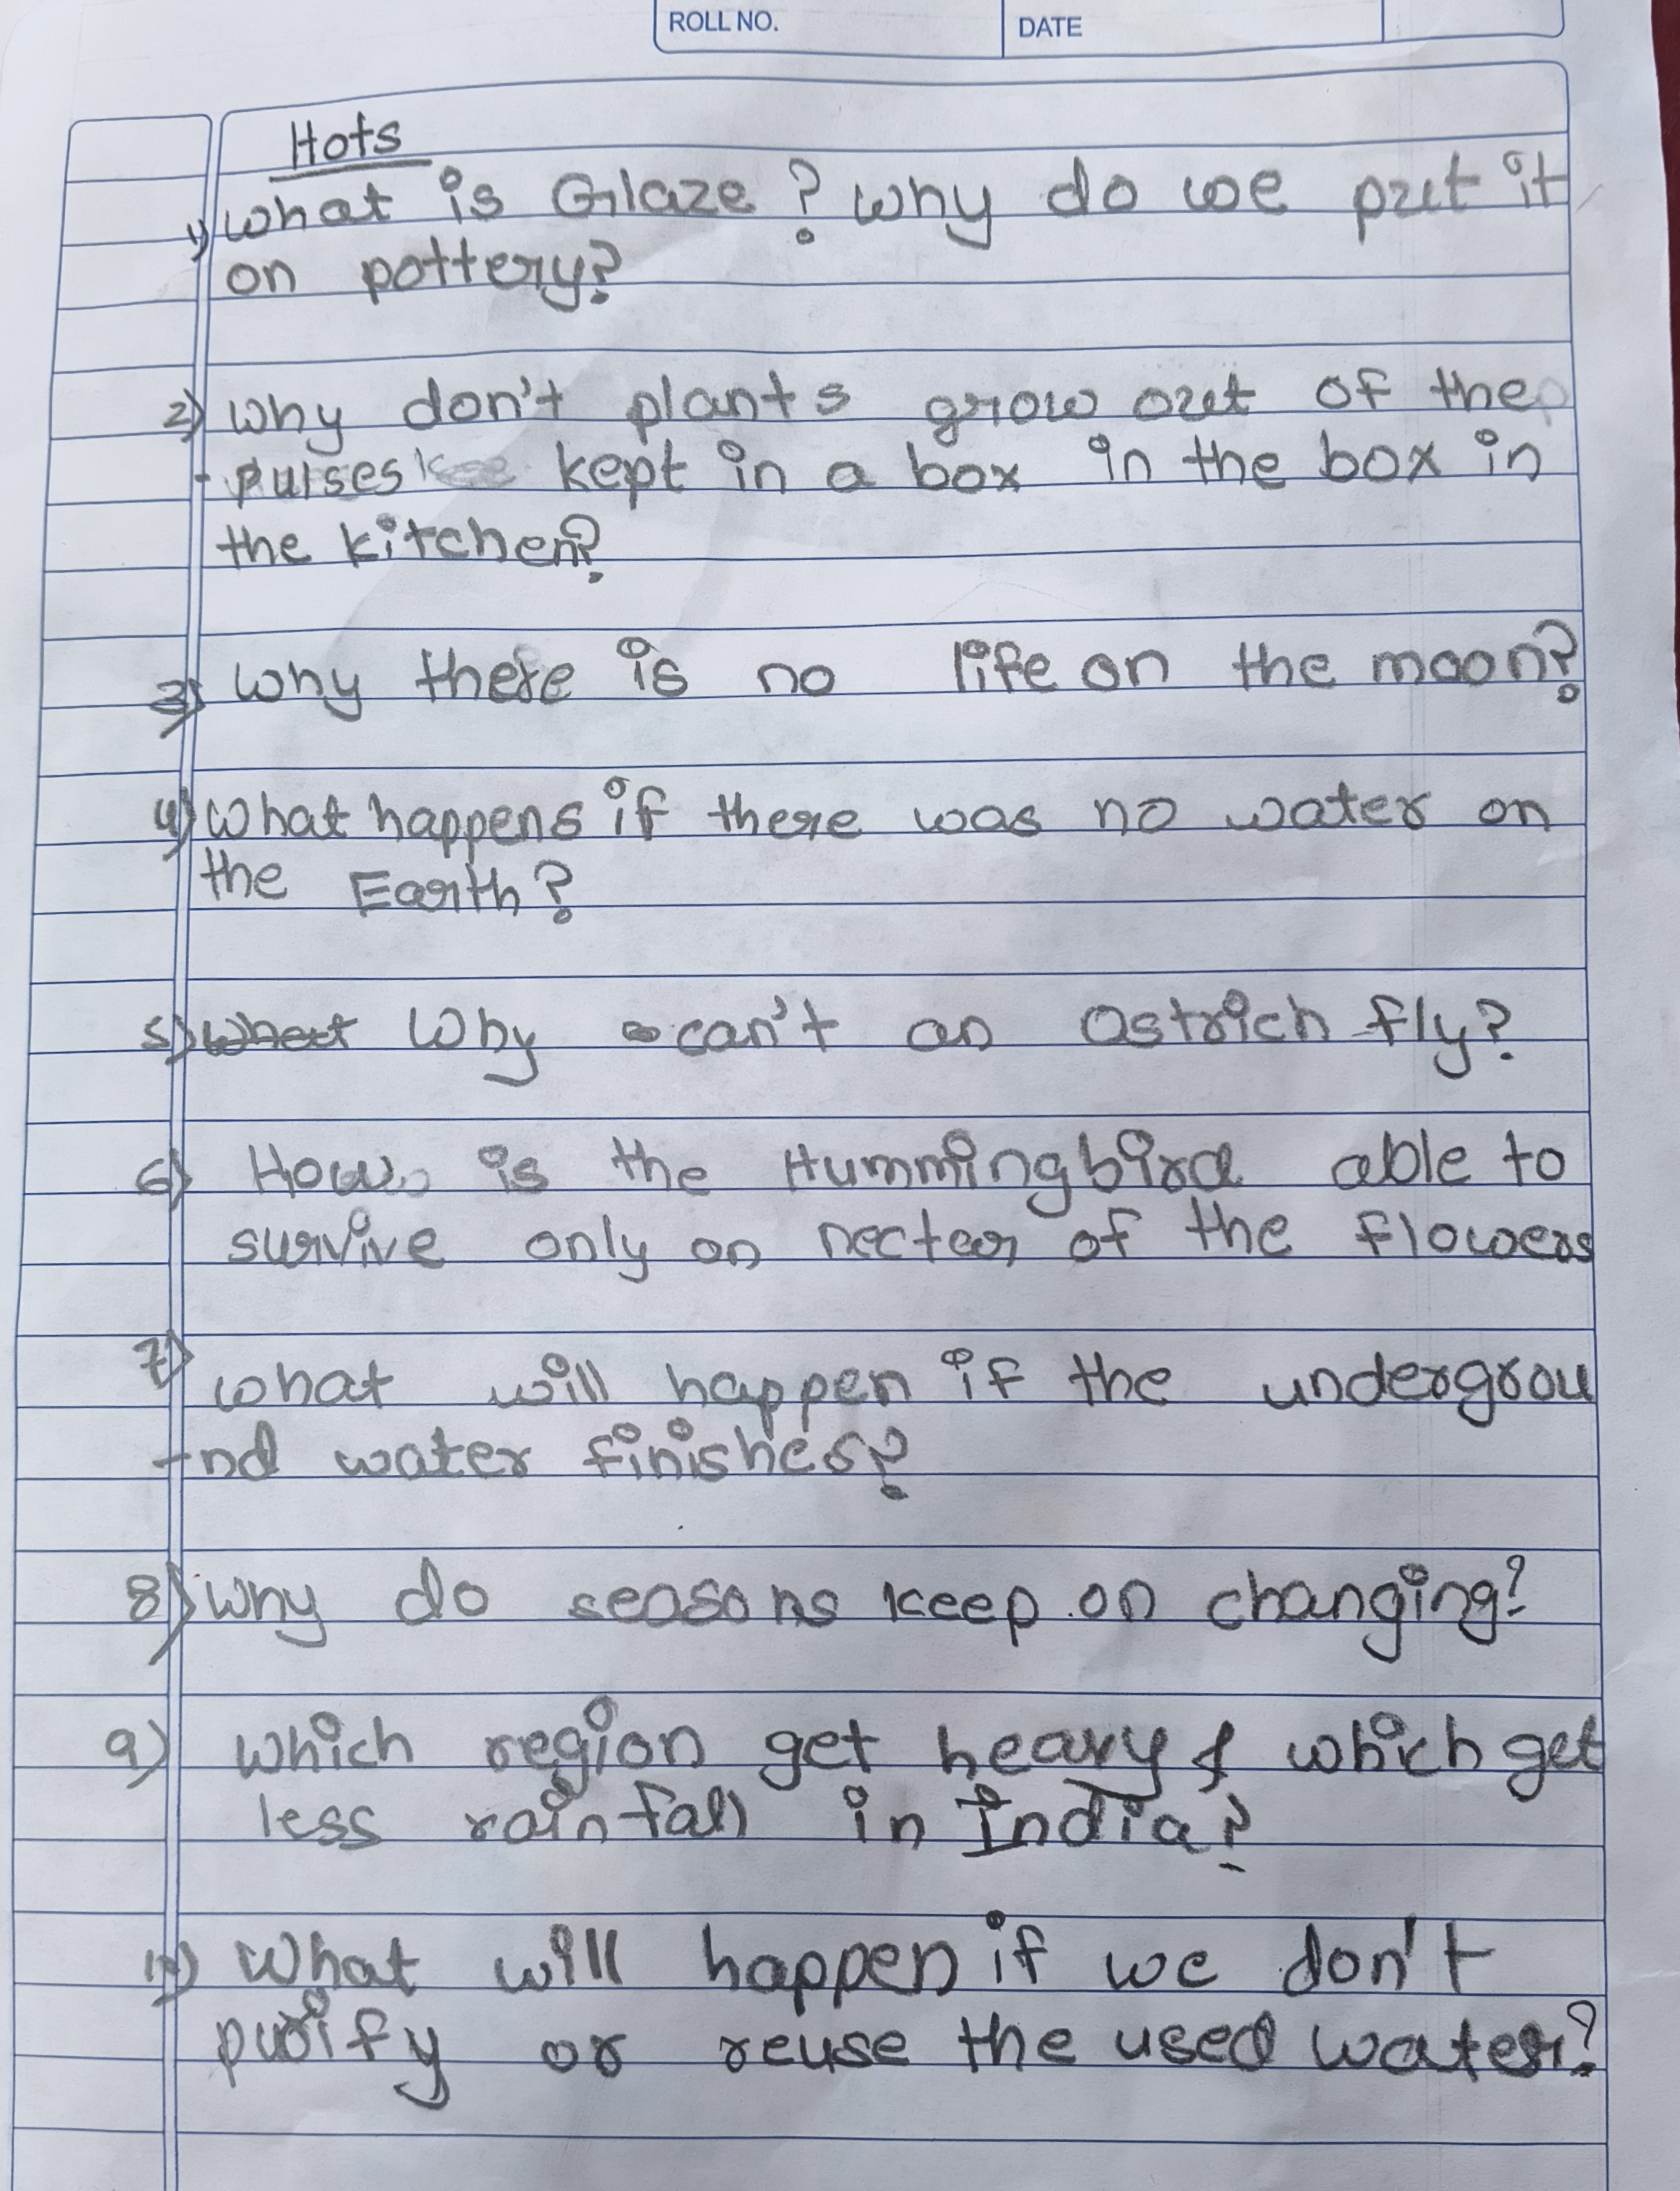 ROLL NO. DATE
Hots
1) What is Glaze? Why do we put it
on pottery?
2) Why don't plants grow out of the
- pulses kept in a box in the box in
the kitchen?
3) Why there is no life on the moon?
4) What happens if there was no water on
the Earth?
5) What Why can't an Ostrich fly?
6) How is the Hummingbird able to
survive only on nectar of the flowers
7) What will happen if the undergrou
-nd water finishes?
8) Why do seasons keep on changing?
9) Which region get heavy & which get
less rainfall in India?
10) What will happen if we don't
purify or reuse the used water?